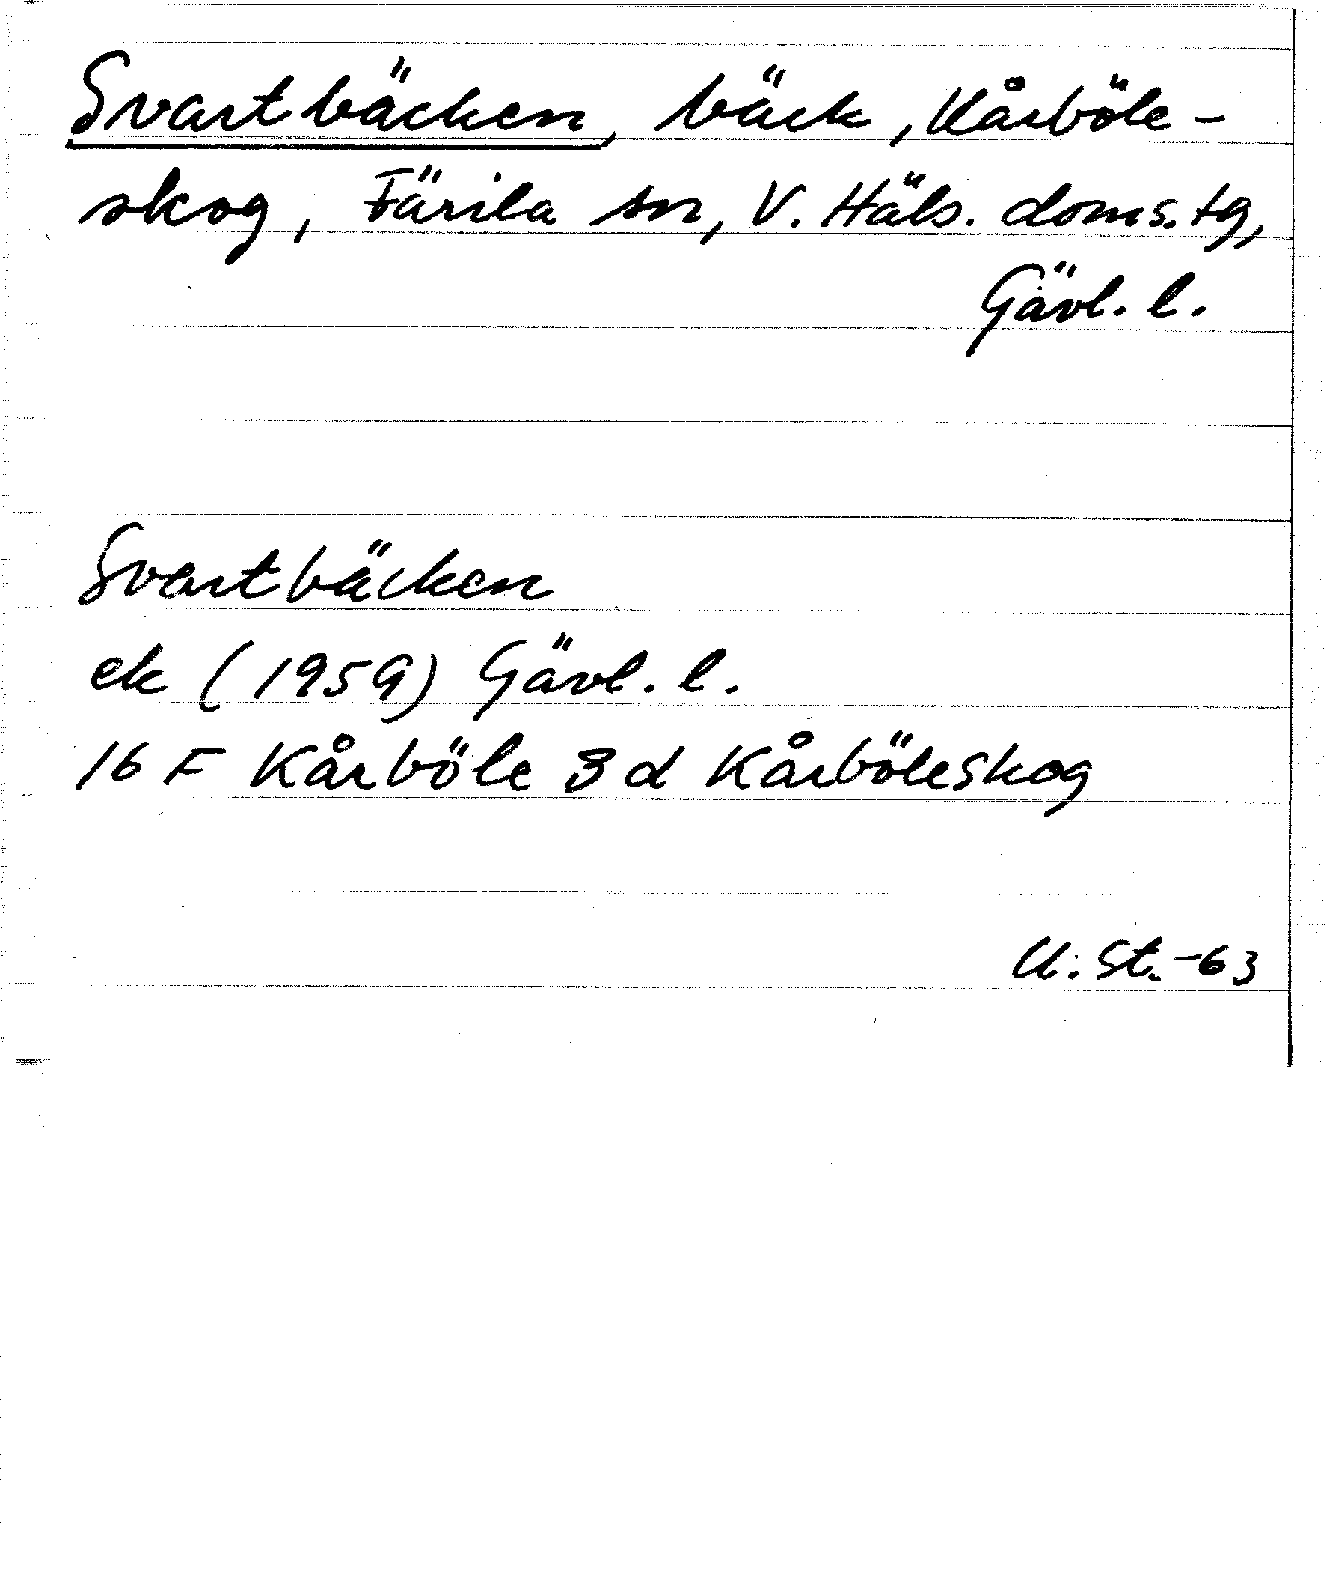 Svartbäcken, bäck, Kårböle-
skog, Färila sn, V. Häls. doms.tg,
Gävl. l.
Svartbäcken
ek (1959) Gävl. l.
16 F Kårböle 3 d Kårböleskog
U. St. -63